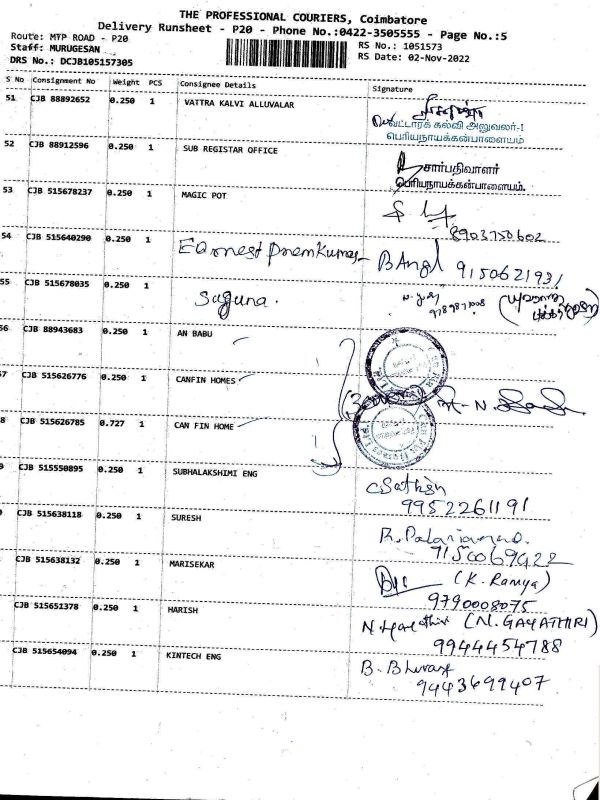 THE PROFESSIONAL COURIERS, Coimbatore
Delivery Runsheet - P20 - Phone No.:0422-3505555 - Page No.:5
Route: MTP ROAD - P20
Staff: MURUGESAN
DRS No.: DCJB105157305
RS No.: 1051573
RS Date: 02-Nov-2022
S No Consignment No Weight PCS Consignee Details Signature
51 CJB 88892652 0.250 1 VATTRA KALVI ALLUVALAR
வட்டாரக் கல்வி அலுவலர்-1
பெரியநாயக்கன்பாளையம்
52 CJB 88912596 0.250 1 SUB REGISTAR OFFICE
சார்பதிவாளர்
பெரியநாயக்கன்பாளையம்.
53 CJB 515678237 0.250 1 MAGIC POT
8903750602
54 CJB 515640290 0.250 1 Earnest Premkumar B Angl 9150621931
55 CJB 515678035 0.250 1 Suguna.
56 CJB 88943683 0.250 1 AN BABU
57 CJB 515626776 0.250 1 CANFIN HOMES
58 CJB 515626785 0.727 1 CAN FIN HOME
9 CJB 515550895 0.250 1 SUBHALAKSHIMI ENG
C Sathish
9952261191
CJB 515638118 0.250 1 SURESH
9150069422
CJB 515638132 0.250 1 MARISEKAR (K. Ramya)
9790008075
CJB 515651378 0.250 1 HARISH (N. GAYATHIRI)
9944454788
CJB 515654094 0.250 1 KINTECH ENG
9443699407